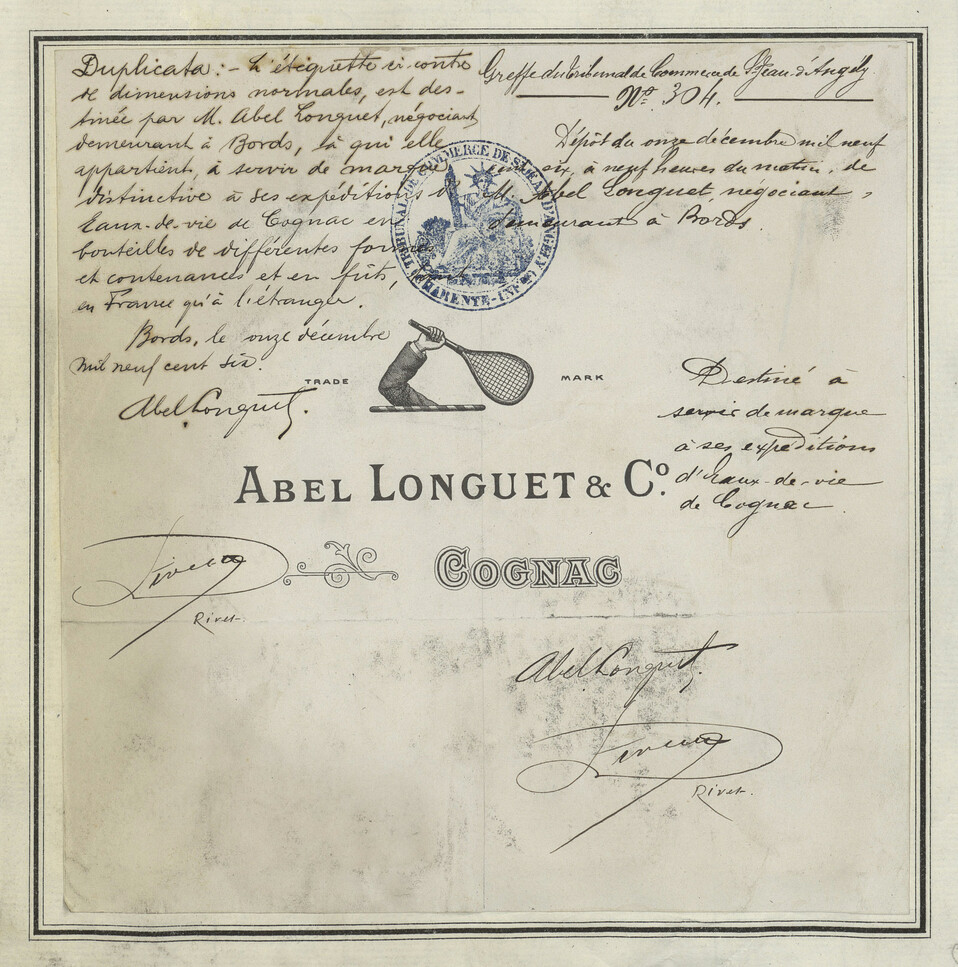 Duplicata :- L'étiquette ci-contre
de dimensions normales, est des-
tinée par M. Abel Longuet, négociant
demeurant à Bords, à qui elle
appartient, à servir de marque
distinctive à ses expéditions d'
Eaux-de-vie de Cognac en
bouteilles de différentes formes
et contenances et en fûts, tant
en France qu'à l'étranger.
Bords, le onze décembre
mil neuf cent six.
Abel Longuet.
Greffe du Tribunal de Commerce de St Jean-d'Angely
No 304.
Dépôt du onze décembre mil neuf
cent six, à neuf heures du matin, de
M. Abel Longuet, négociant,
demeurant à Bords.
TRIBUNAL DE COMMERCE DE ST JEAN D'ANGELY
(CHARENTE-INFRE)
TRADE MARK
Destiné à
servir de marque
à ses expéditions
d'Eaux-de-vie
de Cognac
ABEL LONGUET & Co.
COGNAC
Rivet
Abel Longuet.
Rivet.